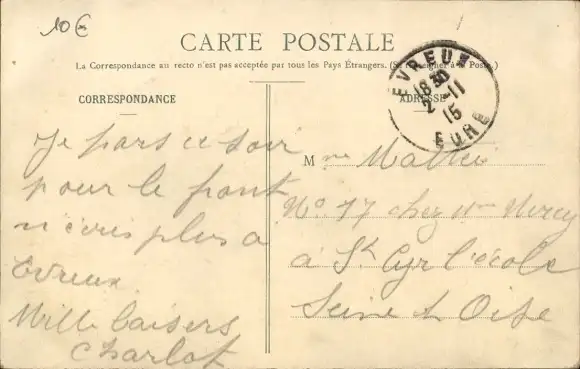 10€
CARTE POSTALE
La Correspondance au recto n'est pas acceptée par tous les Pays Étrangers. (Se renseigner à la Poste.)
CORRESPONDANCE
ADRESSE
EVREUX
18 30
2 -11
15
EURE
Je pars ce soir
pour le front
n'ecris plus a
Evreux.
Mille baisers
Charlot
Mme Mathieu
No 77 chez Mme
à St Cyr l'école
Seine et Oise